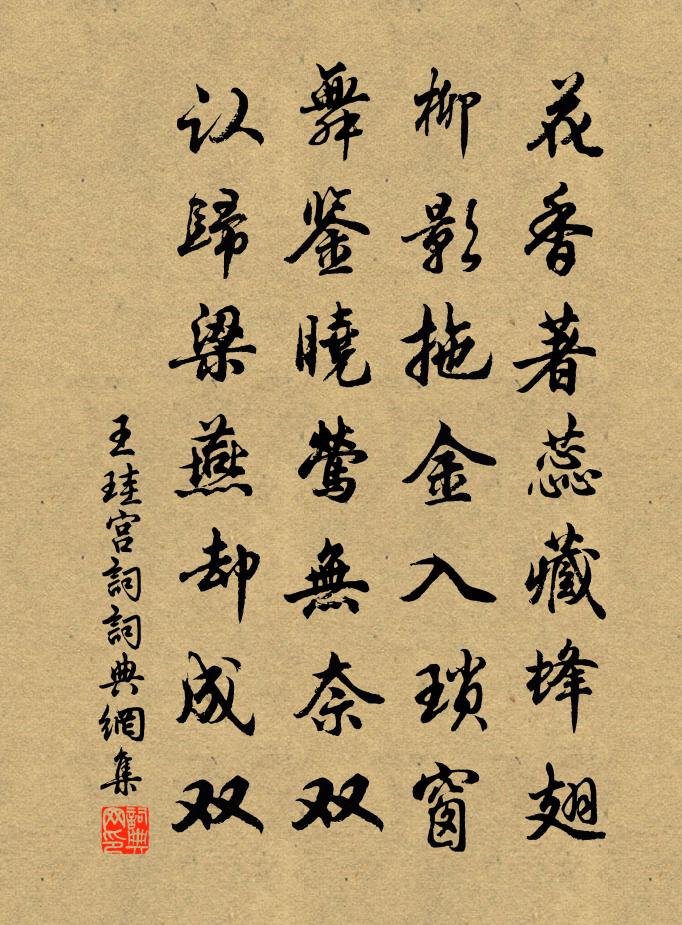 花香著蕊藏蜂翅
柳影拖金入琐窗
舞鉴曉莺無奈双
认歸梁燕却成双
王珪宫詞詞典網集
詞典网印